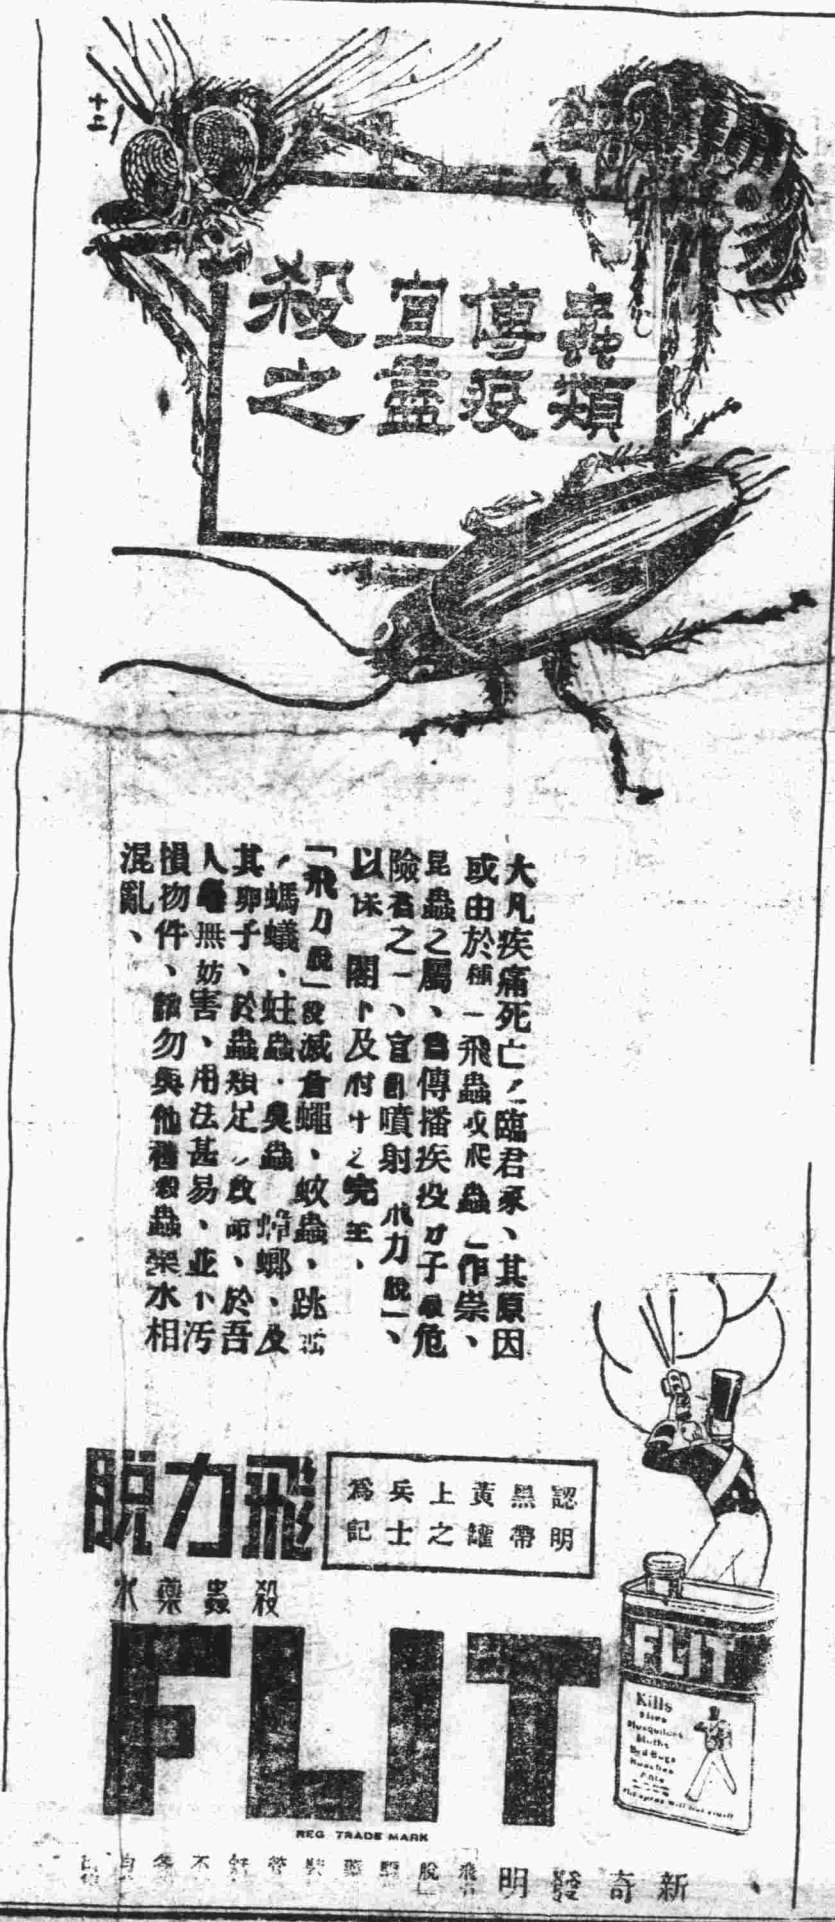 十二
蟲類
傳疫
宜盡
殺之
大凡疾痛死亡之臨君家、其原因
或由於種一飛蟲或爬蟲一作祟、
昆蟲之屬、為傳播疾疫分子最危
險者之一、宜噴射飛力脫」、
以床閣及
「飛力脫」殺滅倉蠅、蚊蟲、跳蚤
、螞蟻、蛀蟲、臭蟲、蟑螂、及
其卵子、於蟲類足以致命、於吾
人毫無妨害、用法甚易、並不汚
損物件、請勿與他種殺蟲藥水相
混亂、
認明
黑帶
黃罐
上之
兵士
爲記
飛力脫
殺蟲藥水
FLIT
REG TRADE MARK
FLIT
Kills
Flies
Mosquitoes
Moths
Bed Bugs
Roaches
Ants
新奇發明